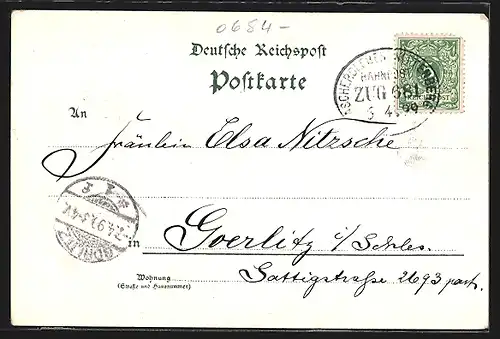 0684-
Deutsche Reichspost
Postkarte
ASCHERSLEBEN WITTENBERG
BAHNPOST
ZUG 681
5 4 99
An
Fräulein Elsa Nitzsche
in Goerlitz i/Schles.
GÖRLITZ
Wohnung
(Straße und Hausnummer)
Sattigstraße 2693 part.